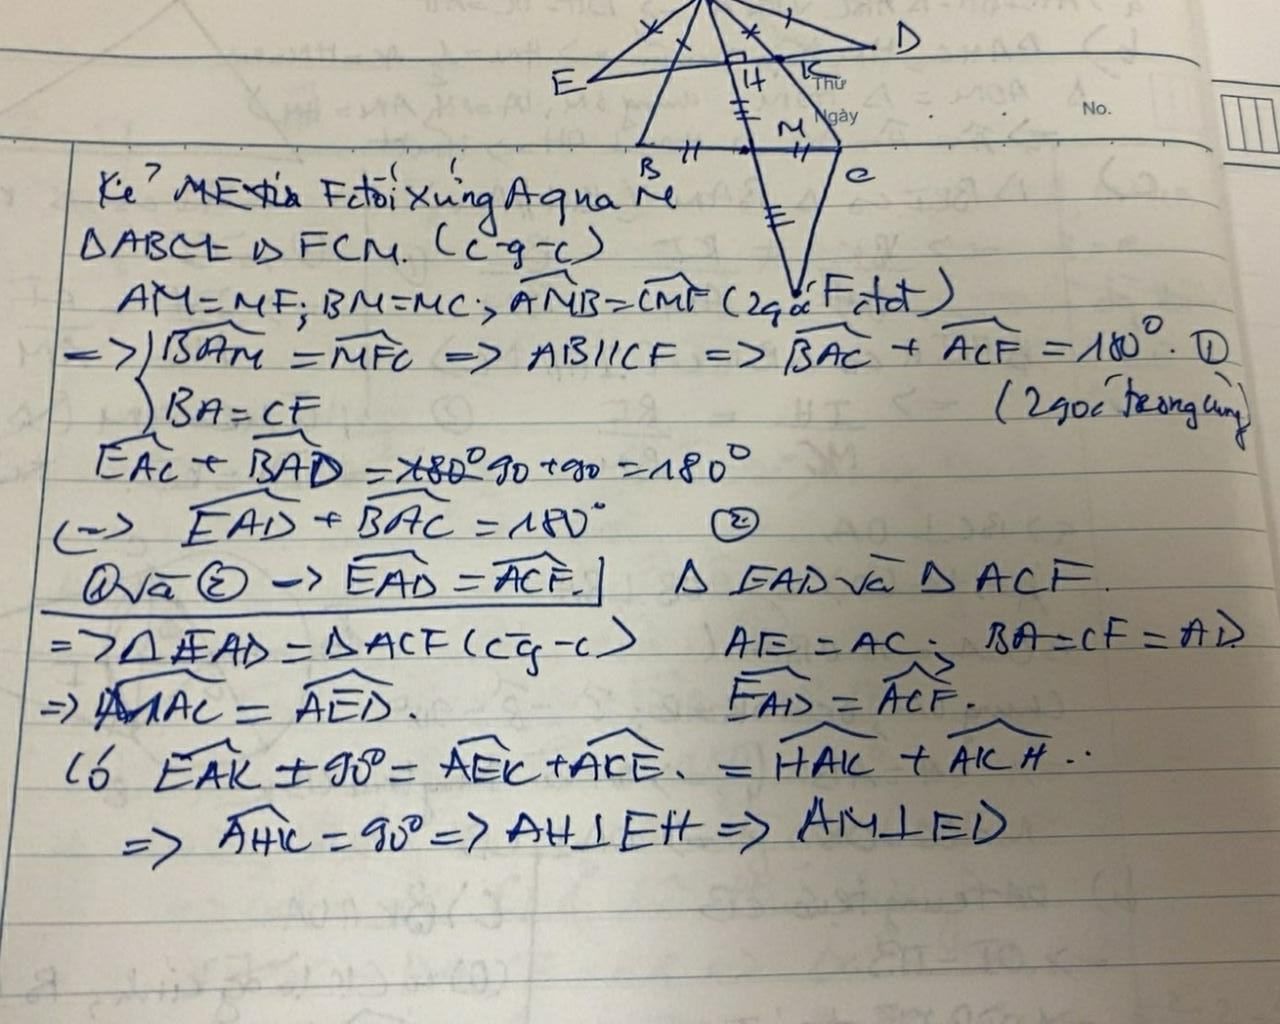 D
E
H
K
Thứ
No.
Ngày
M
B
C
Kẻ ME tia F đối xứng A qua M
Δ ABCM Δ FCM. (c-g-c)
AM = MF; BM = MC; AMB = CMF (2 góc đđ)
F
=> BAM = MFC => AB // CF => BAC + ACF = 180°. ①
BA = CF (2 góc trong cùng)
EAC + BAD = 180° 90 + 90 = 180°
(->) EAD + BAC = 180° ②
① và ② -> EAD = ACF. Δ EAD và Δ ACF.
=> Δ EAD = Δ ACF (c-g-c) AE = AC; BA = CF = AD
=> MAC = AED. EAD = ACF.
Có EAK ± 90° = AEK + AKE. = HAK + AKH..
=> AHK = 90° => AH ⊥ EH => AM ⊥ ED